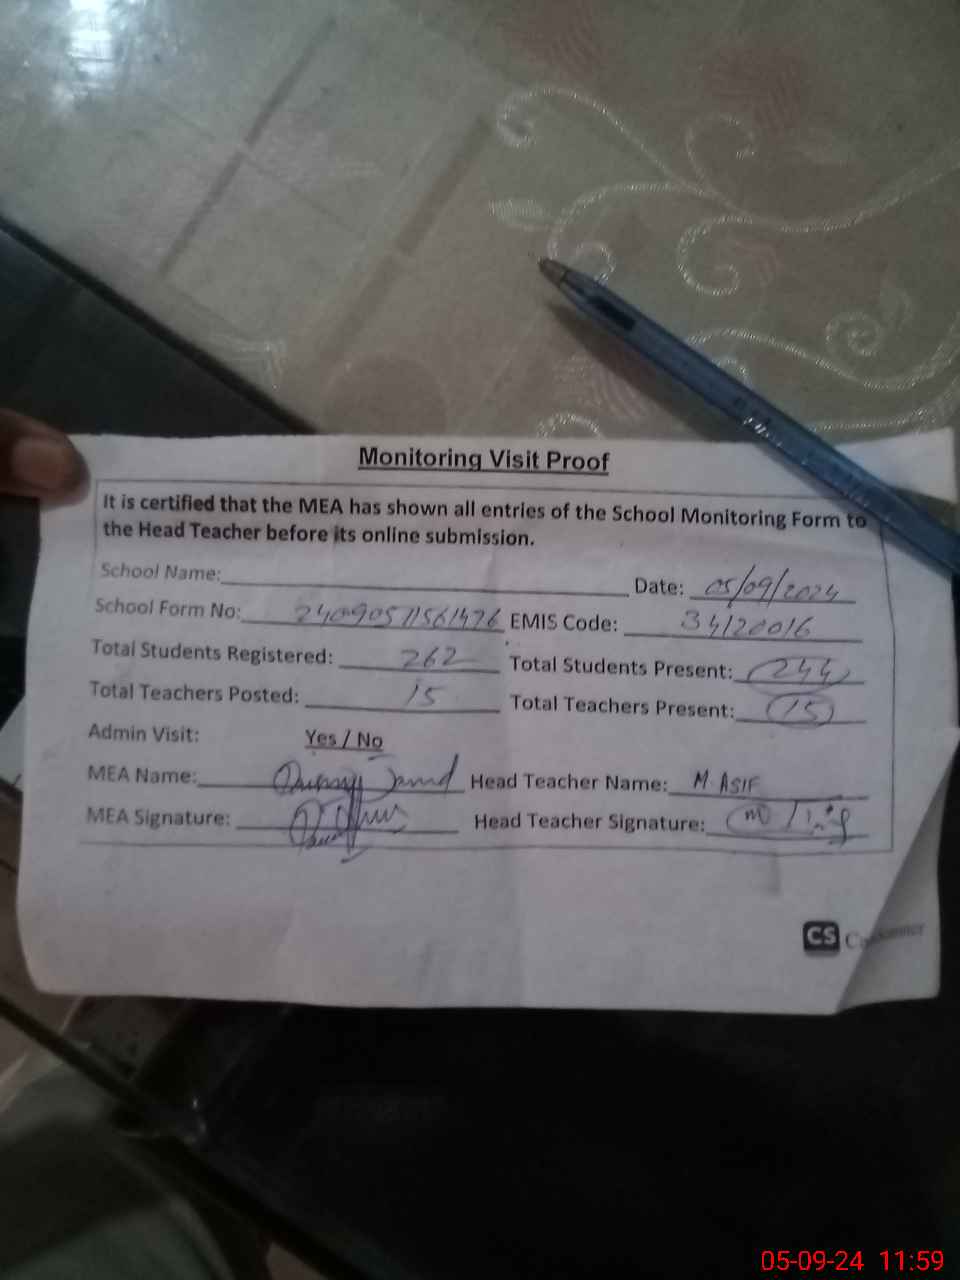 Monitoring Visit Proof
It is certified that the MEA has shown all entries of the School Monitoring Form to
the Head Teacher before its online submission.
School Name: Date: 05/09/2024
School Form No: 24090571561476 EMIS Code: 34120016
Total Students Registered: 262 Total Students Present: 244
Total Teachers Posted: 15 Total Teachers Present: 15
Admin Visit: Yes / No
MEA Name: Head Teacher Name: M. ASIF
MEA Signature: Head Teacher Signature:
CS CamScanner
05-09-24 11:59